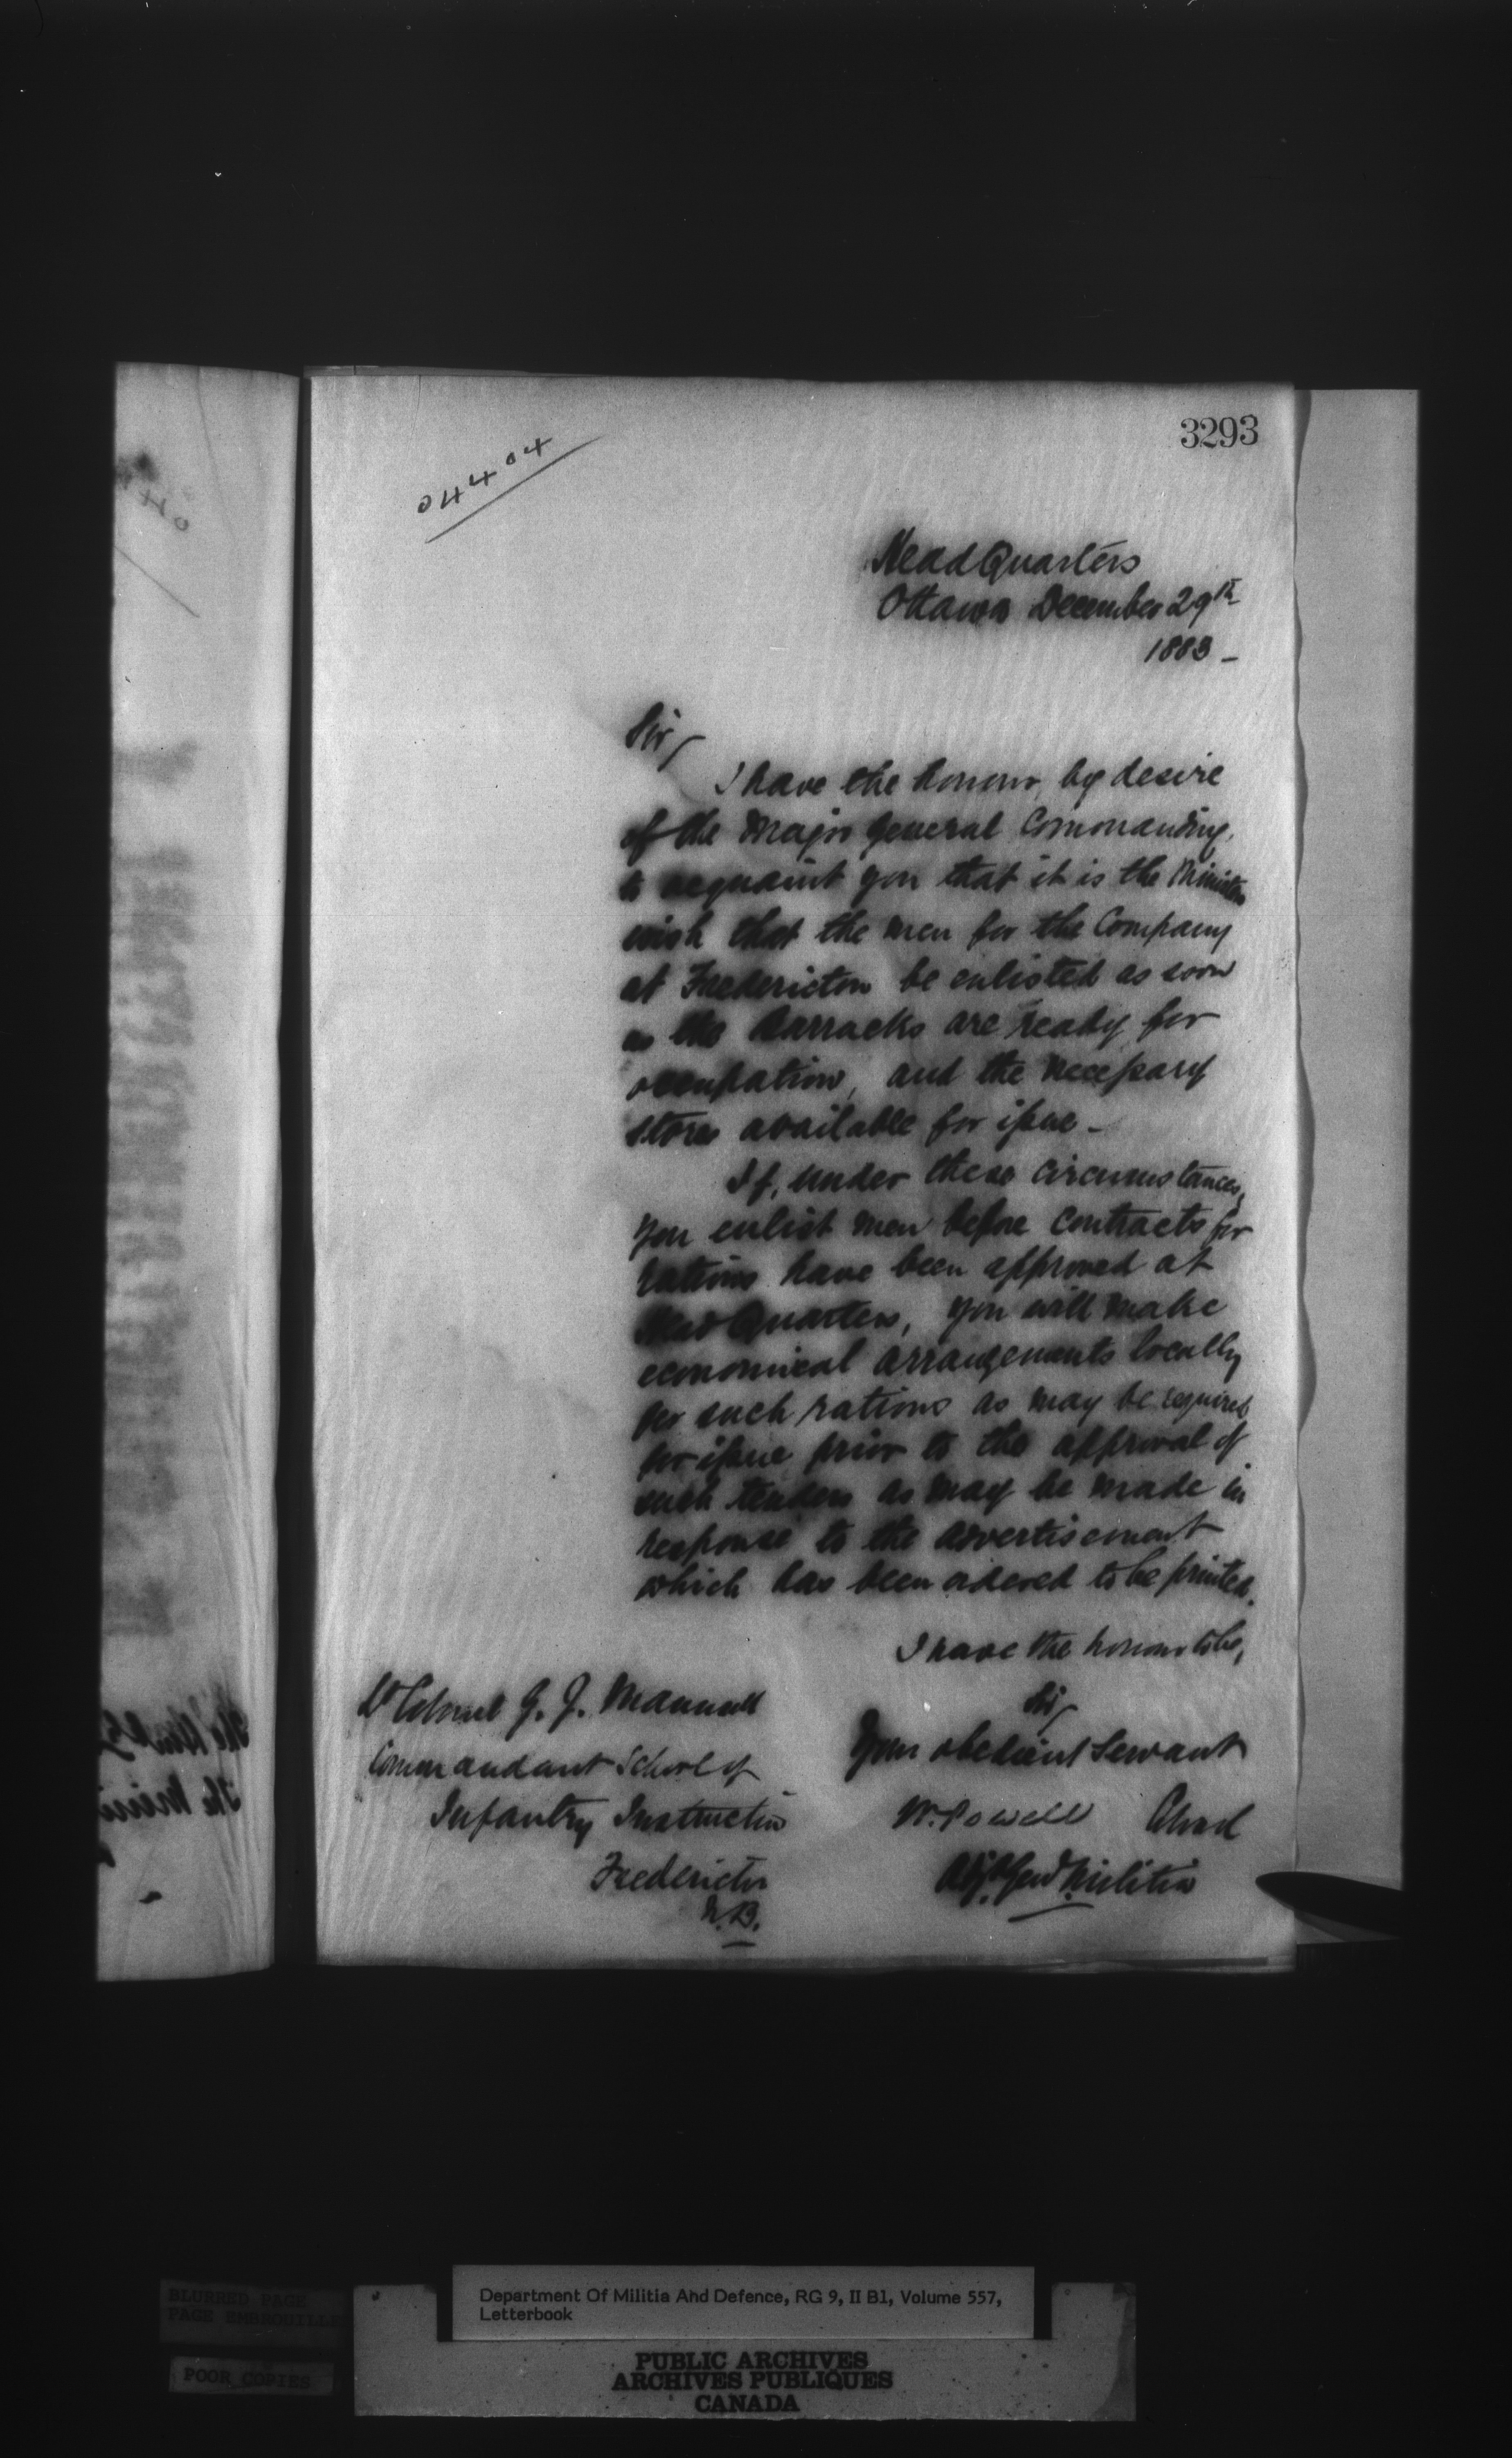 3293
04404
Head Quarters
Ottawa December 29th
1883 -
Sir,
I have the honour, by desire
of the Major General Commanding,
to acquaint you that it is the Ministers
wish that the men for the Company
at Fredericton be enlisted as soon
as the Barracks are ready for
occupation, and the necessary
stores available for issue -
If, under these circumstances,
you enlist men before contracts for
rations have been approved at
Head Quarters, you will make
economical arrangements locally
for such rations as may be required
for issue prior to the approval of
such tenders as may be made in
response to the advertisement
which has been ordered to be printed.
I have the honour to be,
Sir,
Your obedient Servant
W. Powell Colonel
Adjt. Genl Militia
Lt Colonel G. J. Maunsell
Commandant School of
Infantry Instruction
Fredericton
N.B.
BLURRED PAGE
PAGE EMBROUILLE
POOR COPIES
Department Of Militia And Defence, RG 9, II B1, Volume 557,
Letterbook
PUBLIC ARCHIVES
ARCHIVES PUBLIQUES
CANADA